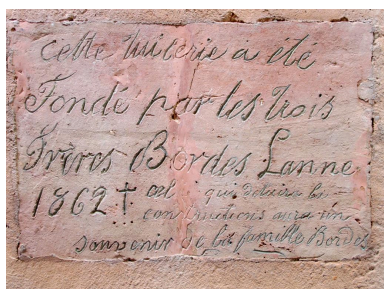 cette tuilerie a été
Fondé par les trois
Frères Bordes Lanne
1862 cel qui detuira les
constructions aura un
souvenir de la famille Bordes